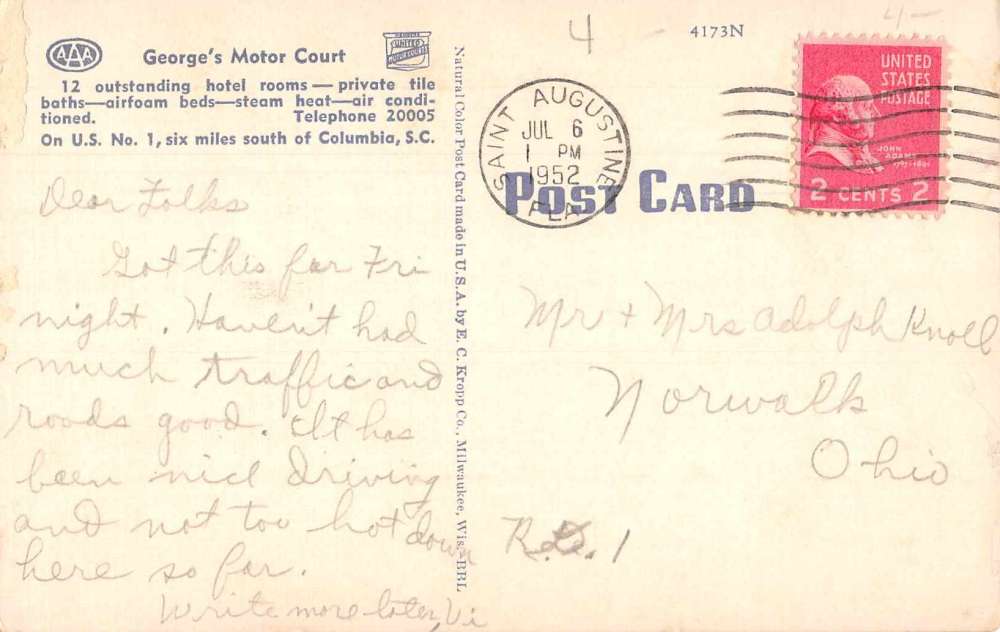 AAA
George's Motor Court
UNITED
12 outstanding hotel rooms — private tile
baths—airfoam beds—steam heat—air condi-
tioned. Telephone 20005
On U.S. No. 1, six miles south of Columbia, S.C.
Dear Folks
Got this for Fri
night. Haven't had
much traffic and
roads good. It has
been nice driving
and not too hot down
here so far.
Write more later, Vi
Natural Color Post Card made in U.S.A. by E. C. Kropp Co., Milwaukee, Wis.-BBL
4
4173N
4-
SAINT AUGUSTINE
JUL 6
1 PM
1952
FLA
UNITED
STATES
POSTAGE
JOHN
ADAMS
2 CENTS 2
POST CARD
Mr + Mrs Adolph Knoll
Norwalk
Ohio
R.D. 1